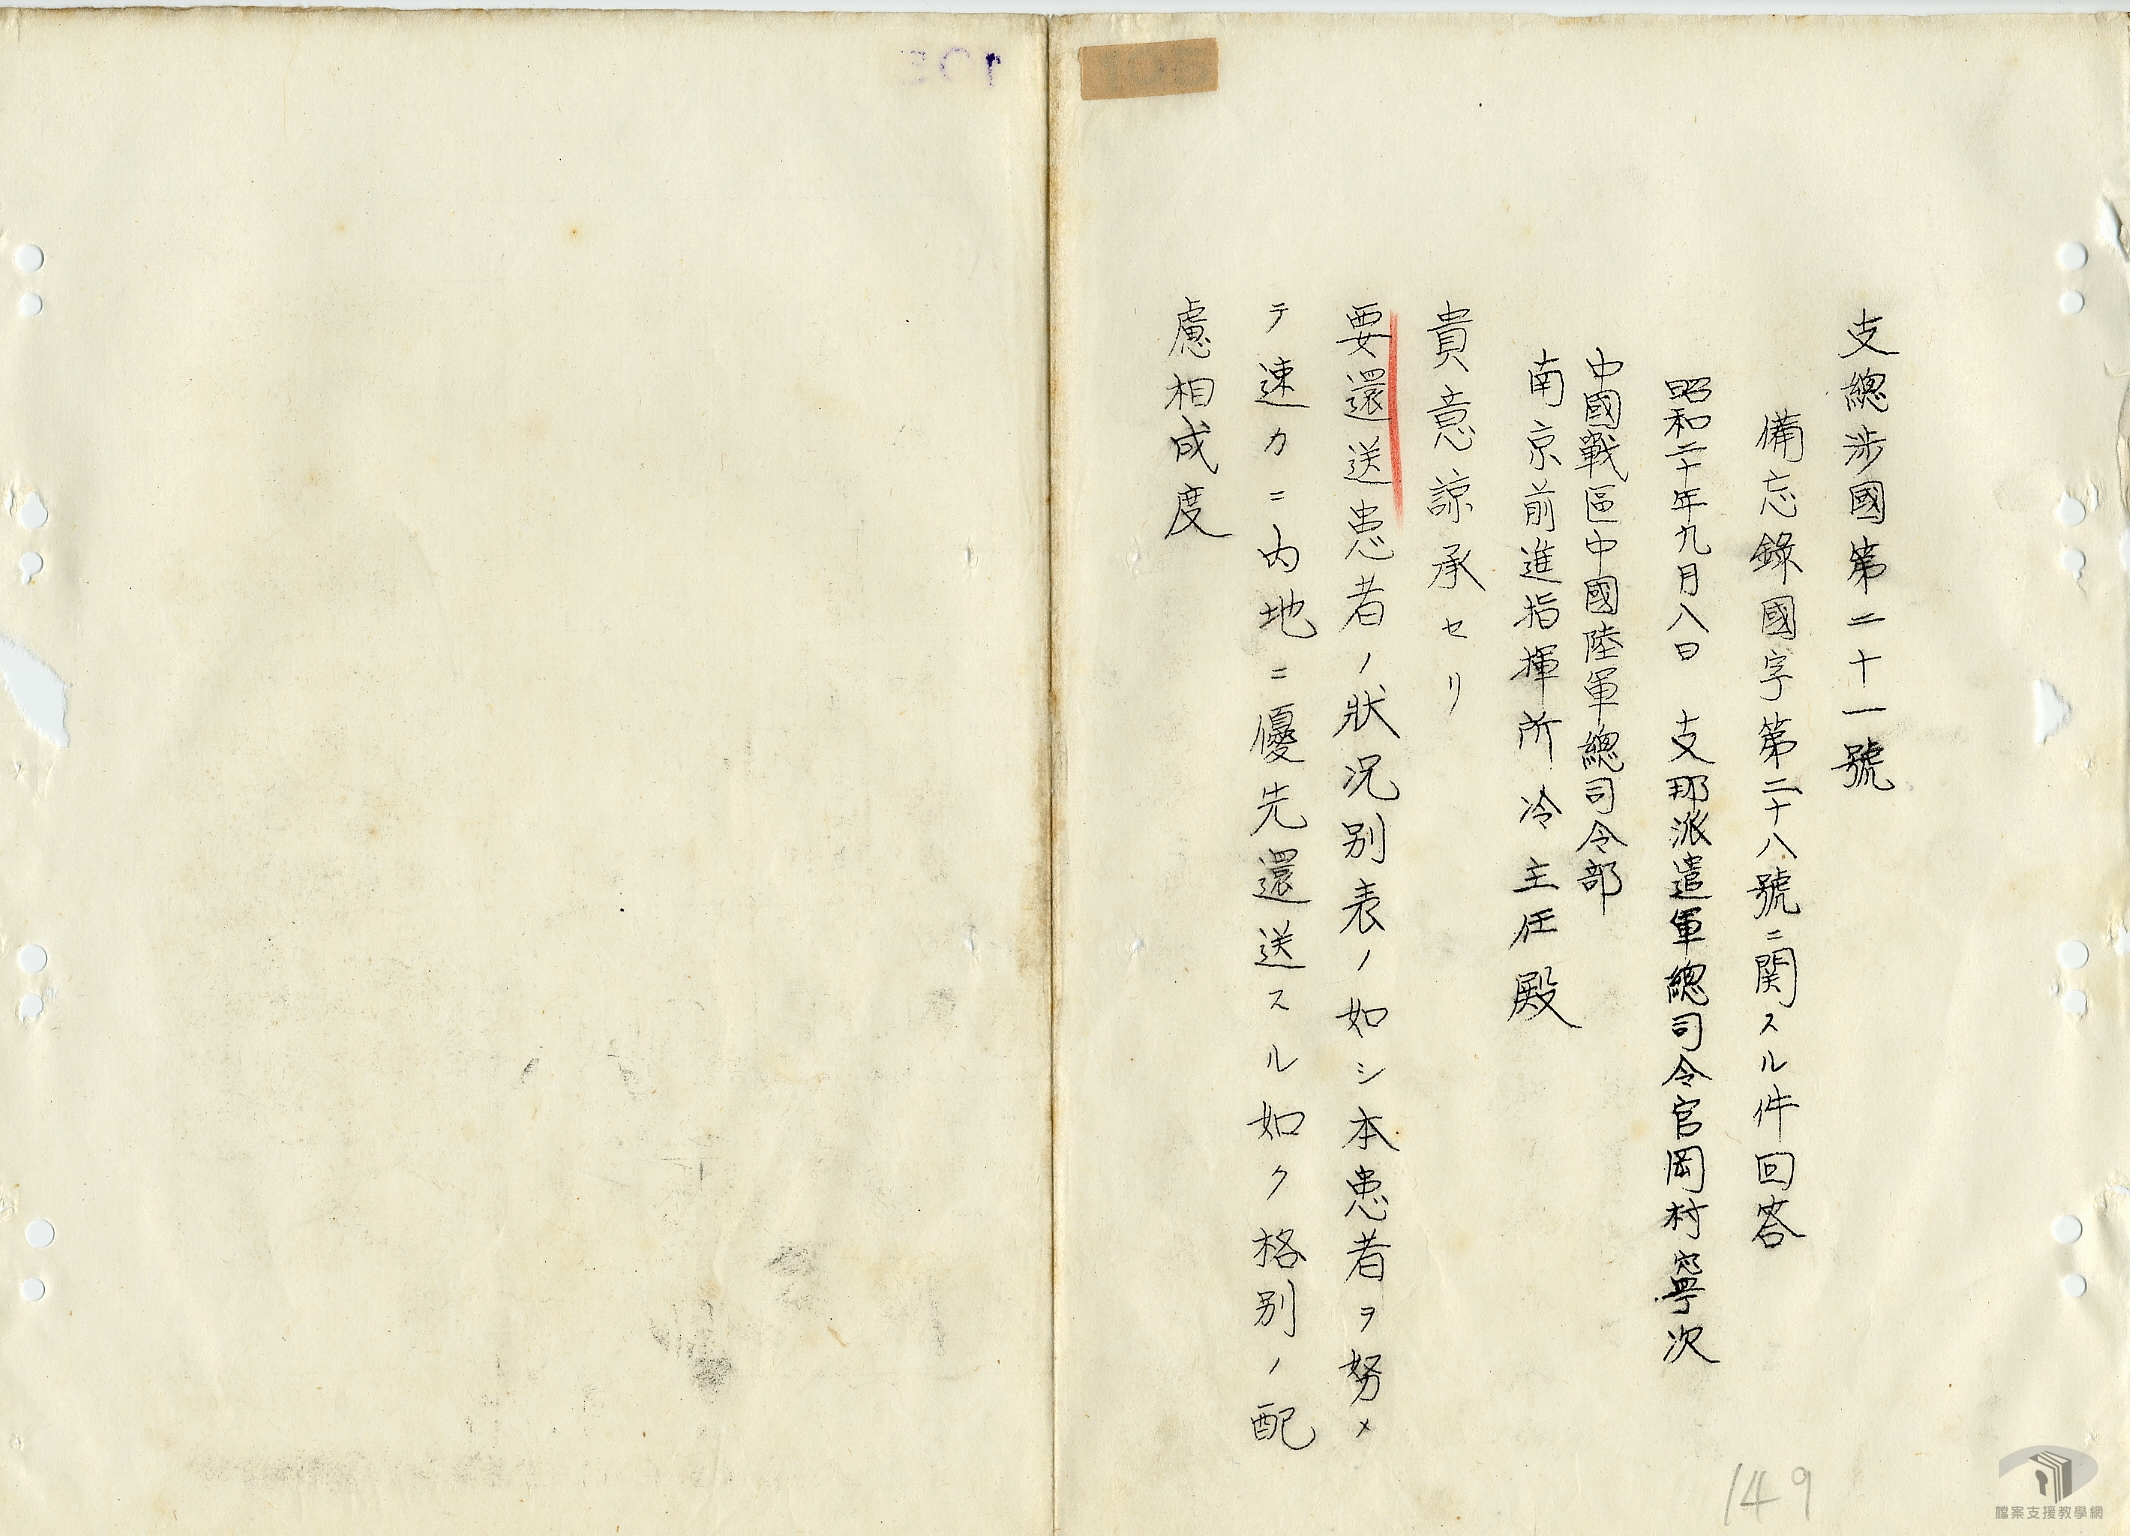 支總涉國第二十一號
備忘錄國字第二十八號ニ関スル件回答
昭和二十年九月八日　支那派遣軍總司令官岡村寧次
中國戰區中國陸軍總司令部
南京前進指揮所冷主任殿
貴意諒承セリ
要還送患者ノ狀况別表ノ如シ本患者ヲ努メ
テ速カニ内地ニ優先還送スル如ク格別ノ配
慮相成度
149
檔案支援教學網